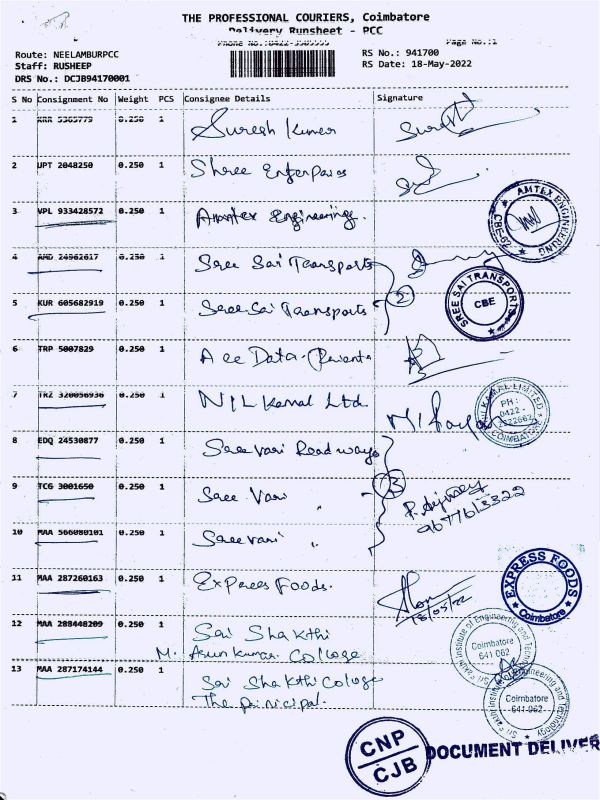 THE PROFESSIONAL COURIERS, Coimbatore
Delivery Runsheet - PCC
Page No.:1
Route: NEELAMBURPCC
RS No.: 941700
Staff: RUSHEEP
RS Date: 18-May-2022
DRS No.: DCJB94170001
S No Consignment No Weight PCS Consignee Details Signature
1 KRR 5365779 0.250 1 Suresh Kumar
2 UPT 2048250 0.250 1 Shree Enterprises
3 VPL 933428572 0.250 1 Amtex Engineering.
AMTEX ENGINEERING
CBE-62
4 AMD 24962617 0.250 1 Sree Sai Transports
2
5 KUR 605682919 0.250 1 Sree Sai Transports
SREE SAI TRANSPORTS
CBE
6 TRP 5007829 0.250 1 Data
7 TRZ 320056936 0.250 1 NILKamal Ltd
NILKAMAL LIMITED
PH :
0422 -
COIMBATORE
8 EDQ 24530877 0.250 1 Sree Vari Roadways
3
9 TCG 3001650 0.250 1 Sree Vari "
9677613322
10 MAA 566080101 0.250 1 Sree vari "
11 MAA 287260163 0.250 1 Express Foods.
18/05/22
EXPRESS FOODS
Coimbatore
12 MAA 288448209 0.250 1 Sai Shakthi
M. Arun Kumar College
Sri Sakthi Institute of Engineering and Technology
Coimbatore
641 062
13 MAA 287174144 0.250 1 Sai Shakthi College
The Principal.
Sri Sakthi Institute of Engineering and Technology
Coimbatore
641-062
CNP
CJB
DOCUMENT DELIVER